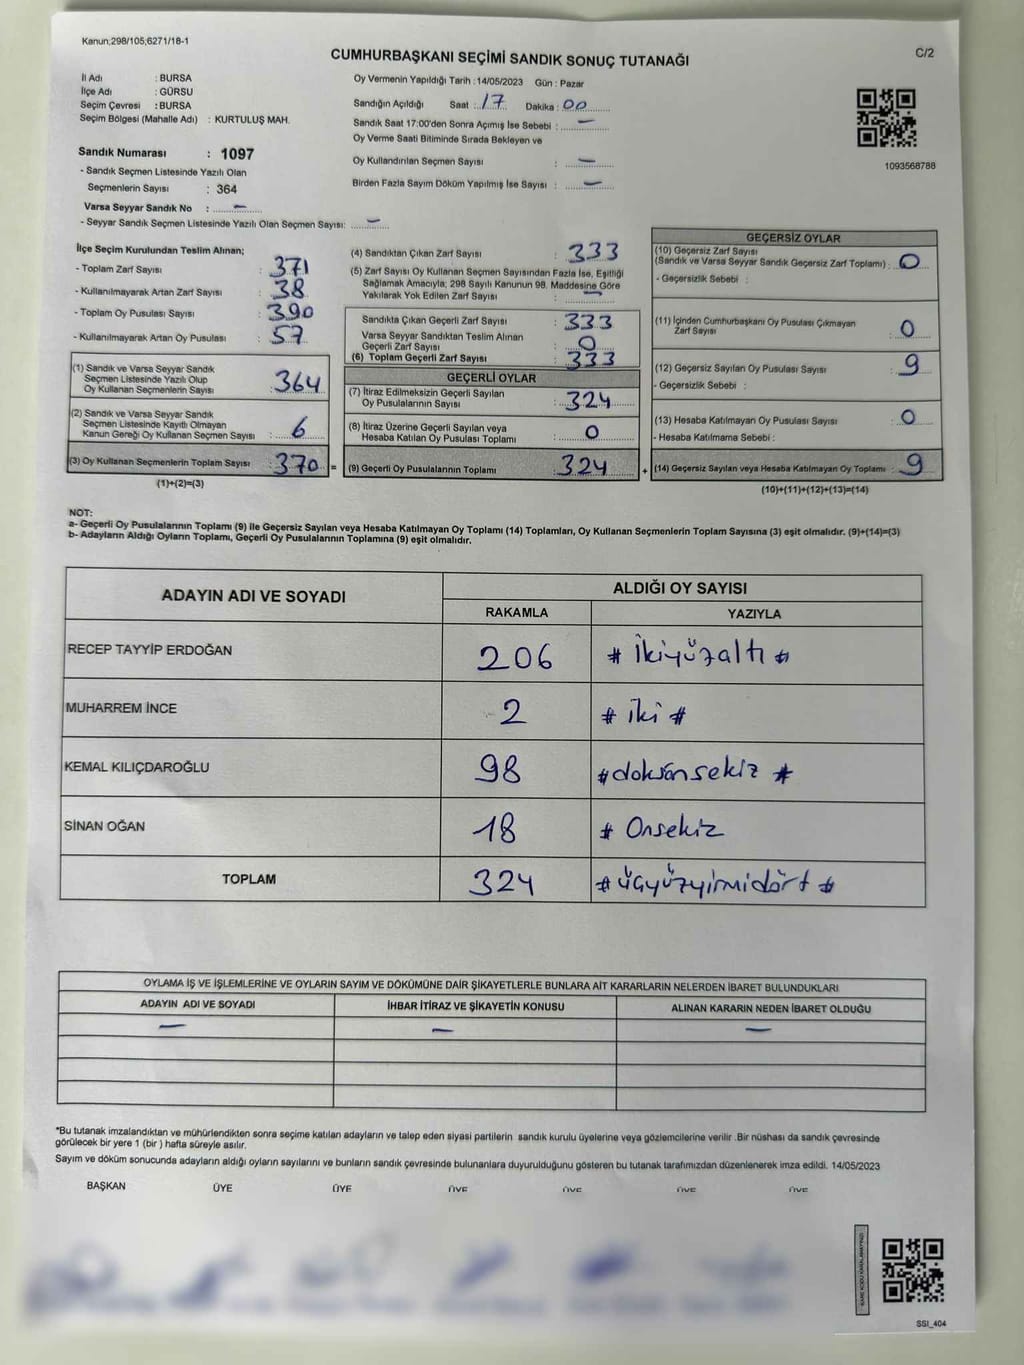 Kanun;298/105;6271/18-1
C/2
CUMHURBAŞKANI SEÇİMİ SANDIK SONUÇ TUTANAĞI
İl Adı : BURSA
İlçe Adı : GÜRSU
Seçim Çevresi : BURSA
Seçim Bölgesi (Mahalle Adı) : KURTULUŞ MAH.
Sandık Numarası : 1097
- Sandık Seçmen Listesinde Yazılı Olan
Seçmenlerin Sayısı : 364
Varsa Seyyar Sandık No : –
- Seyyar Sandık Seçmen Listesinde Yazılı Olan Seçmen Sayısı: –
Oy Vermenin Yapıldığı Tarih : 14/05/2023 Gün : Pazar
Sandığın Açıldığı Saat : 17 Dakika : 00
Sandık Saat 17:00'den Sonra Açımış İse Sebebi : –
Oy Verme Saati Bitiminde Sırada Bekleyen ve
Oy Kullandırılan Seçmen Sayısı : –
Birden Fazla Sayım Döküm Yapılmış İse Sayısı : –
1093568788
İlçe Seçim Kurulundan Teslim Alınan;
- Toplam Zarf Sayısı : 371
- Kullanılmayarak Artan Zarf Sayısı : 38
- Toplam Oy Pusulası Sayısı : 390
- Kullanılmayarak Artan Oy Pusulası : 57
(1) Sandık ve Varsa Seyyar Sandık
Seçmen Listesinde Yazılı Olup
Oy Kullanan Seçmenlerin Sayısı : 364
(2) Sandık ve Varsa Seyyar Sandık
Seçmen Listesinde Kayıtlı Olmayan
Kanun Gereği Oy Kullanan Seçmen Sayısı : 6
(3) Oy Kullanan Seçmenlerin Toplam Sayısı : 370 =
(1)+(2)=(3)
(4) Sandıktan Çıkan Zarf Sayısı : 333
(5) Zarf Sayısı Oy Kullanan Seçmen Sayısından Fazla İse, Eşitliği
Sağlamak Amacıyla; 298 Sayılı Kanunun 98. Maddesine Göre
Yakılarak Yok Edilen Zarf Sayısı : –
Sandıkta Çıkan Geçerli Zarf Sayısı : 333
Varsa Seyyar Sandıktan Teslim Alınan
Geçerli Zarf Sayısı : 0
(6) Toplam Geçerli Zarf Sayısı : 333
GEÇERLİ OYLAR
(7) İtiraz Edilmeksizin Geçerli Sayılan
Oy Pusulalarının Sayısı : 324
(8) İtiraz Üzerine Geçerli Sayılan veya
Hesaba Katılan Oy Pusulası Toplamı : 0
(9) Geçerli Oy Pusulalarının Toplamı : 324 +
GEÇERSİZ OYLAR
(10) Geçersiz Zarf Sayısı
(Sandık ve Varsa Seyyar Sandık Geçersiz Zarf Toplamı) : 0
- Geçersizlik Sebebi :
(11) İçinden Cumhurbaşkanı Oy Pusulası Çıkmayan
Zarf Sayısı : 0
(12) Geçersiz Sayılan Oy Pusulası Sayısı : 9
- Geçersizlik Sebebi :
(13) Hesaba Katılmayan Oy Pusulası Sayısı : 0
- Hesaba Katılmama Sebebi :
(14) Geçersiz Sayılan veya Hesaba Katılmayan Oy Toplamı : 9
(10)+(11)+(12)+(13)=(14)
NOT:
a- Geçerli Oy Pusulalarının Toplamı (9) ile Geçersiz Sayılan veya Hesaba Katılmayan Oy Toplamı (14) Toplamları, Oy Kullanan Seçmenlerin Toplam Sayısına (3) eşit olmalıdır. (9)+(14)=(3)
b- Adayların Aldığı Oyların Toplamı, Geçerli Oy Pusulalarının Toplamına (9) eşit olmalıdır.
ADAYIN ADI VE SOYADI ALDIĞI OY SAYISI
RAKAMLA YAZIYLA
RECEP TAYYİP ERDOĞAN 206 # İkiyüzaltı #
MUHARREM İNCE 2 # iki #
KEMAL KILIÇDAROĞLU 98 # doksansekiz #
SİNAN OĞAN 18 # Onsekiz
TOPLAM 324 # üçyüzyirmidört #
OYLAMA İŞ VE İŞLEMLERİNE VE OYLARIN SAYIM VE DÖKÜMÜNE DAİR ŞİKAYETLERLE BUNLARA AİT KARARLARIN NELERDEN İBARET BULUNDUKLARI
ADAYIN ADI VE SOYADI İHBAR İTİRAZ VE ŞİKAYETİN KONUSU ALINAN KARARIN NEDEN İBARET OLDUĞU
– – –
*Bu tutanak imzalandıktan ve mühürlendikten sonra seçime katılan adayların ve talep eden siyasi partilerin sandık kurulu üyelerine veya gözlemcilerine verilir .Bir nüshası da sandık çevresinde
görülecek bir yere 1 (bir ) hafta süreyle asılır.
Sayım ve döküm sonucunda adayların aldığı oyların sayılarını ve bunların sandık çevresinde bulunanlara duyurulduğunu gösteren bu tutanak tarafımızdan düzenlenerek imza edildi. 14/05/2023
BAŞKAN ÜYE ÜYE ÜYE ÜYE ÜYE ÜYE
KARE KODU KARALAMAYINIZ!
SSI_404